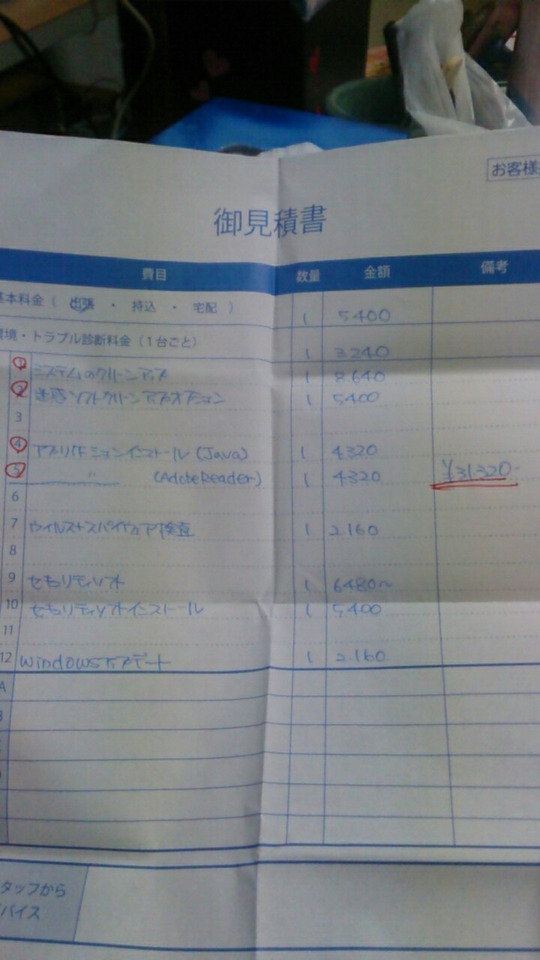 お客様
御見積書
費目 数量 金額 備考
基本料金（ 出張 ・ 持込 ・ 宅配 ） 1 5400
環境・トラブル診断料金（1台ごと） 1 3240
1 システムのクリーンアップ 1 8640
2 迷惑ソフトクリーンアップオプション 1 5400
3
4 アプリケーションインストール (Java) 1 4320
5 〃 (AdobeReader) 1 4320 ¥31320-
6
7 ウイルス+スパイウェア検査 1 2160
8
9 セキュリティソフト 1 6480～
10 セキュリティソフトインストール 1 5400
11
12 Windowsアップデート 1 2160
A
タッフから
バイス